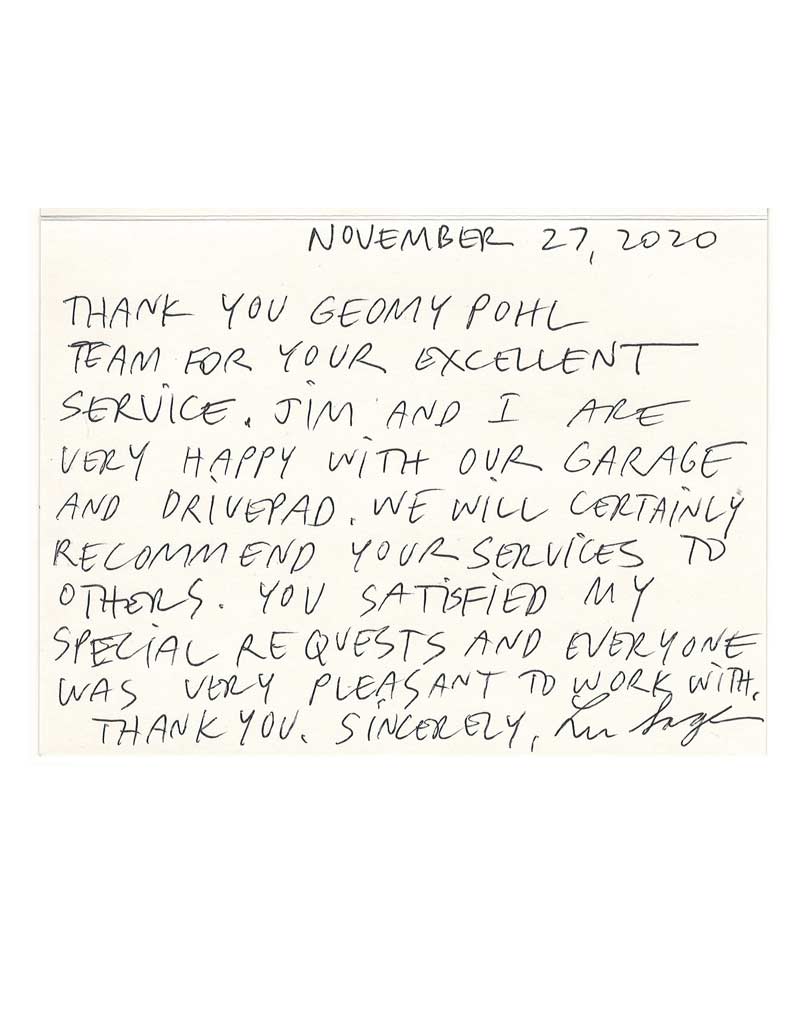 NOVEMBER 27, 2020
THANK YOU GEOMY POHL
TEAM FOR YOUR EXCELLENT
SERVICE. JIM AND I ARE
VERY HAPPY WITH OUR GARAGE
AND DRIVEPAD. WE WILL CERTAINLY
RECOMMEND YOUR SERVICES TO
OTHERS. YOU SATISFIED MY
SPECIAL REQUESTS AND EVERYONE
WAS VERY PLEASANT TO WORK WITH.
THANK YOU. SINCERELY,